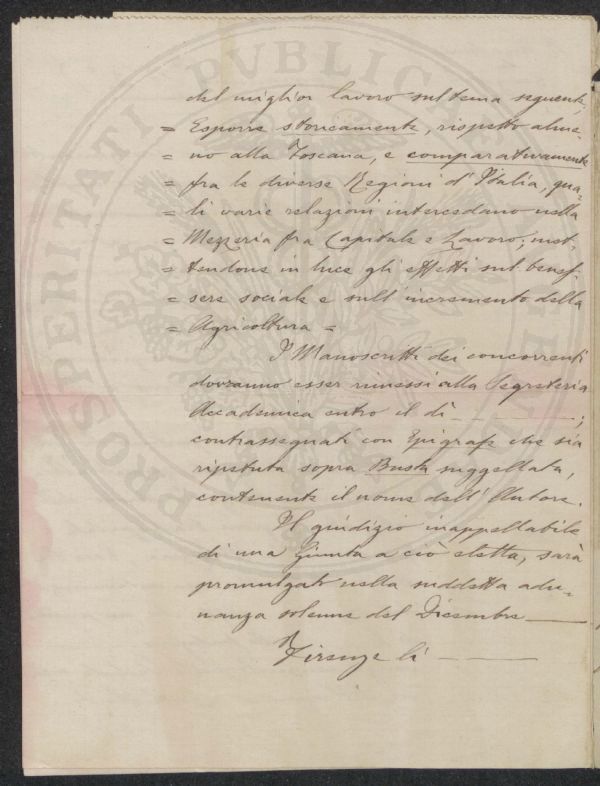 del miglior lavoro sul tema seguente,
= Esporre storicamente, rispetto alme-
= no alla Toscana, e comparativamente
= fra le diverse Regioni d'Italia, qua-
= li varie relazioni intercedano nella
= Mezzeria fra Capitale e Lavoro; met-
= tendone in luce gli effetti sul benes-
= sere sociale e sull'incremento della
= Agricoltura =
I Manoscritti dei concorrenti
dovranno esser rimessi alla Segreteria
Accademica entro il dì — ;
contrassegnati con Epigrafe che sia
ripetuta sopra Busta suggellata,
contenente il nome dell'Autore.
Il giudizio inappellabile
di una Giunta a ciò eletta, sarà
promulgato nella suddetta adu-
nanza solenne del Dicembre —
Firenze lì —
PROSPERITATI PVBLICAE